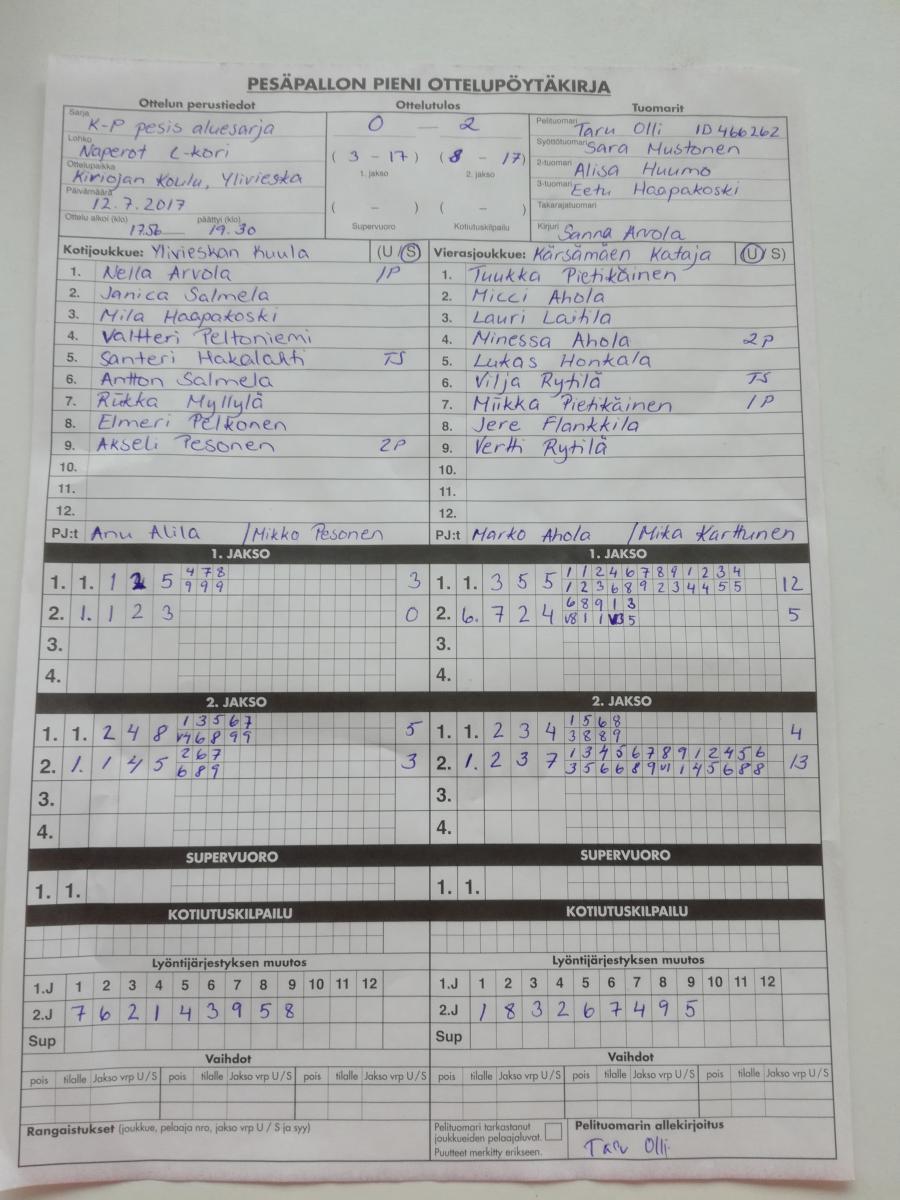 PESÄPALLON PIENI OTTELUPÖYTÄKIRJA
Ottelun perustiedot Ottelutulos Tuomarit
Sarja K-P pesis aluesarja
Lohko Naperot L-kori
Ottelupaikka Kiriojan Koulu, Ylivieska
Päivämäärä 12.7.2017
Ottelu alkoi (klo) 17.56 päättyi (klo) 19.30
0 — 2
( 3 - 17 ) ( 8 - 17 )
1. jakso 2. jakso
( - ) ( - )
Supervuoro Kotiutuskilpailu
Pelituomari Taru Olli ID 466262
Syöttötuomari Sara Mustonen
2-tuomari Alisa Huumo
3-tuomari Eetu Haapakoski
Takarajatuomari
Kirjuri Sanna Arvola
Kotijoukkue: Ylivieskan Kuula (U / S)
1. Nella Arvola 1P
2. Janica Salmela
3. Mila Haapakoski
4. Valtteri Peltoniemi
5. Santeri Hakalahti TS
6. Antton Salmela
7. Riikka Myllylä
8. Elmeri Pelkonen
9. Akseli Pesonen 2P
10.
11.
12.
PJ:t Anu Alila / Mikko Pesonen
Vierasjoukkue: Kärsämäen Kataja (U / S)
1. Tuukka Pietikäinen
2. Micci Ahola
3. Lauri Laitila
4. Minessa Ahola 2P
5. Lukas Honkala
6. Vilja Rytilä TS
7. Miikka Pietikäinen 1P
8. Jere Flankkila
9. Vertti Rytilä
10.
11.
12.
PJ:t Marko Ahola / Mika Karttunen
1. JAKSO
4 7 8
1. 1. 1 2 5 3
9 9 9
2. 1. 1 2 3 0
3.
4.
1. JAKSO
1 1 2 4 6 7 8 9 1 2 3 4
1. 1. 3 5 5 12
1 2 3 6 8 9 2 3 4 4 5 5
6 8 9 1 3
2. 6. 7 2 4 5
3.
4.
2. JAKSO
1 3 5 6 7
1. 1. 2 4 8 5
v4 6 8 9 9
2 6 7
2. 1. 1 4 5 3
6 8 9
3.
4.
2. JAKSO
1 5 6 8
1. 1. 2 3 4 4
3 8 8 9
1 3 4 5 6 7 8 9 1 2 4 5 6
2. 1. 2 3 7 13
3 5 6 6 8 9 v1 1 4 5 6 8 8
3.
4.
SUPERVUORO
1. 1.
SUPERVUORO
1. 1.
KOTIUTUSKILPAILU
KOTIUTUSKILPAILU
Lyöntijärjestyksen muutos
1.J 1 2 3 4 5 6 7 8 9 10 11 12
2.J 7 6 2 1 4 3 9 5 8
Sup
Lyöntijärjestyksen muutos
1.J 1 2 3 4 5 6 7 8 9 10 11 12
2.J 1 8 3 2 6 7 4 9 5
Sup
Vaihdot
pois tilalle Jakso vrp U / S pois tilalle Jakso vrp U / S pois tilalle Jakso vrp U / S
Vaihdot
pois tilalle Jakso vrp U / S pois tilalle Jakso vrp U / S pois tilalle Jakso vrp U / S
Rangaistukset (joukkue, pelaaja nro, jakso vrp U / S ja syy)
Pelituomari tarkastanut
joukkueiden pelaajaluvat.
Puutteet merkitty erikseen.
Pelituomarin allekirjoitus
Taru Olli